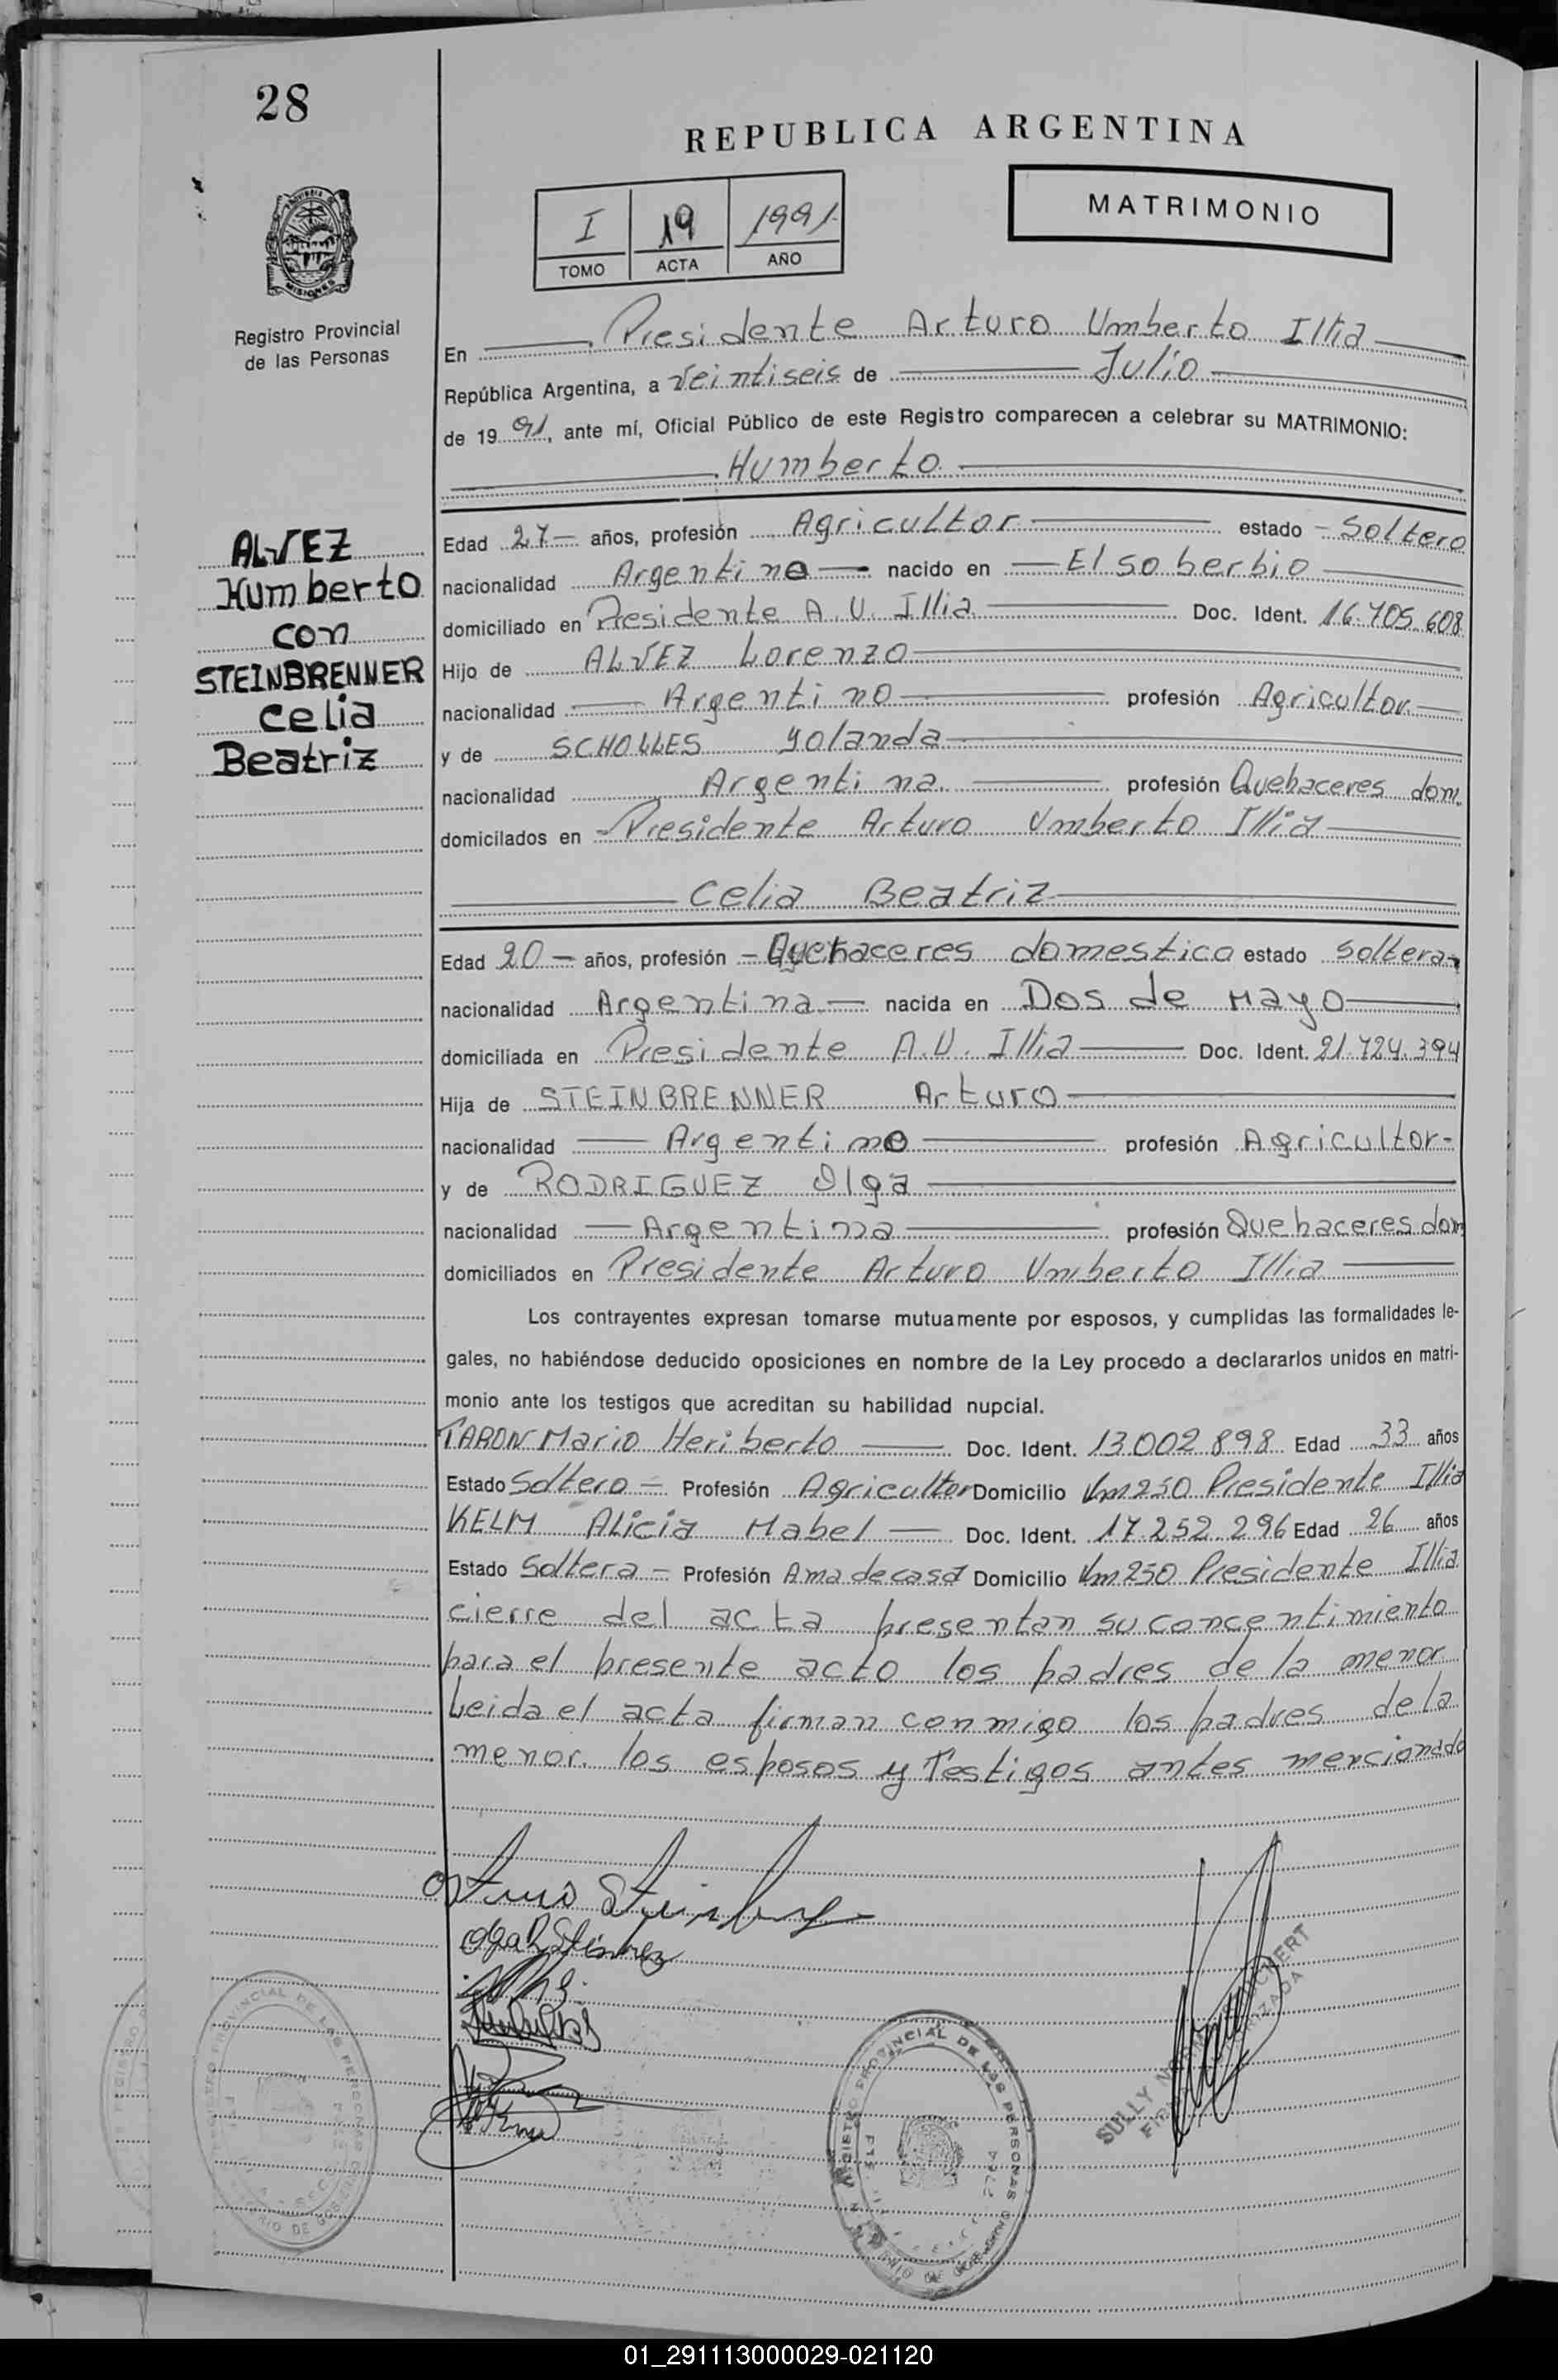 28
REPUBLICA ARGENTINA
MATRIMONIO
I 19 1991
TOMO ACTA AÑO
MISIONES
Registro Provincial
de las Personas
En Presidente Arturo Umberto Illia
República Argentina, a veintiseis de Julio
de 19 91, ante mí, Oficial Público de este Registro comparecen a celebrar su MATRIMONIO:
Humberto
ALVEZ
Humberto
con
STEINBRENNER
Celia
Beatriz
Edad 27 años, profesión Agricultor estado Soltero
nacionalidad Argentino nacido en El soberbio
domiciliado en Presidente A.U. Illia Doc. Ident. 16.705.608
Hijo de ALVEZ Lorenzo
nacionalidad Argentino profesión Agricultor
y de SCHOLLES Yolanda
nacionalidad Argentina profesión Quehaceres dom.
domicilados en Presidente Arturo Umberto Illia
Celia Beatriz
Edad 20 años, profesión Quehaceres domestico estado soltera
nacionalidad Argentina nacida en Dos de Mayo
domiciliada en Presidente A.U. Illia Doc. Ident. 21.724.394
Hija de STEINBRENNER Arturo
nacionalidad Argentino profesión Agricultor
y de RODRIGUEZ Olga
nacionalidad Argentina profesión Quehaceres dom
domiciliados en Presidente Arturo Umberto Illia
Los contrayentes expresan tomarse mutuamente por esposos, y cumplidas las formalidades le-
gales, no habiéndose deducido oposiciones en nombre de la Ley procedo a declararlos unidos en matri-
monio ante los testigos que acreditan su habilidad nupcial.
TARON Mario Heriberto Doc. Ident. 13.002.898 Edad 33 años
Estado Soltero Profesión Agricultor Domicilio Km 250 Presidente Illia
KELM Alicia Mabel Doc. Ident. 17.252.296 Edad 26 años
Estado Soltera Profesión Ama de casa Domicilio Km 250 Presidente Illia
cierre del acta presentan su concentimiento
para el presente acto los padres de la menor
Leida el acta firman conmigo los padres de la
menor. los esposos y Testigos antes mencionado
REGISTRO PROVINCIAL DE LAS PERSONAS
SULLY
01_291113000029-021120